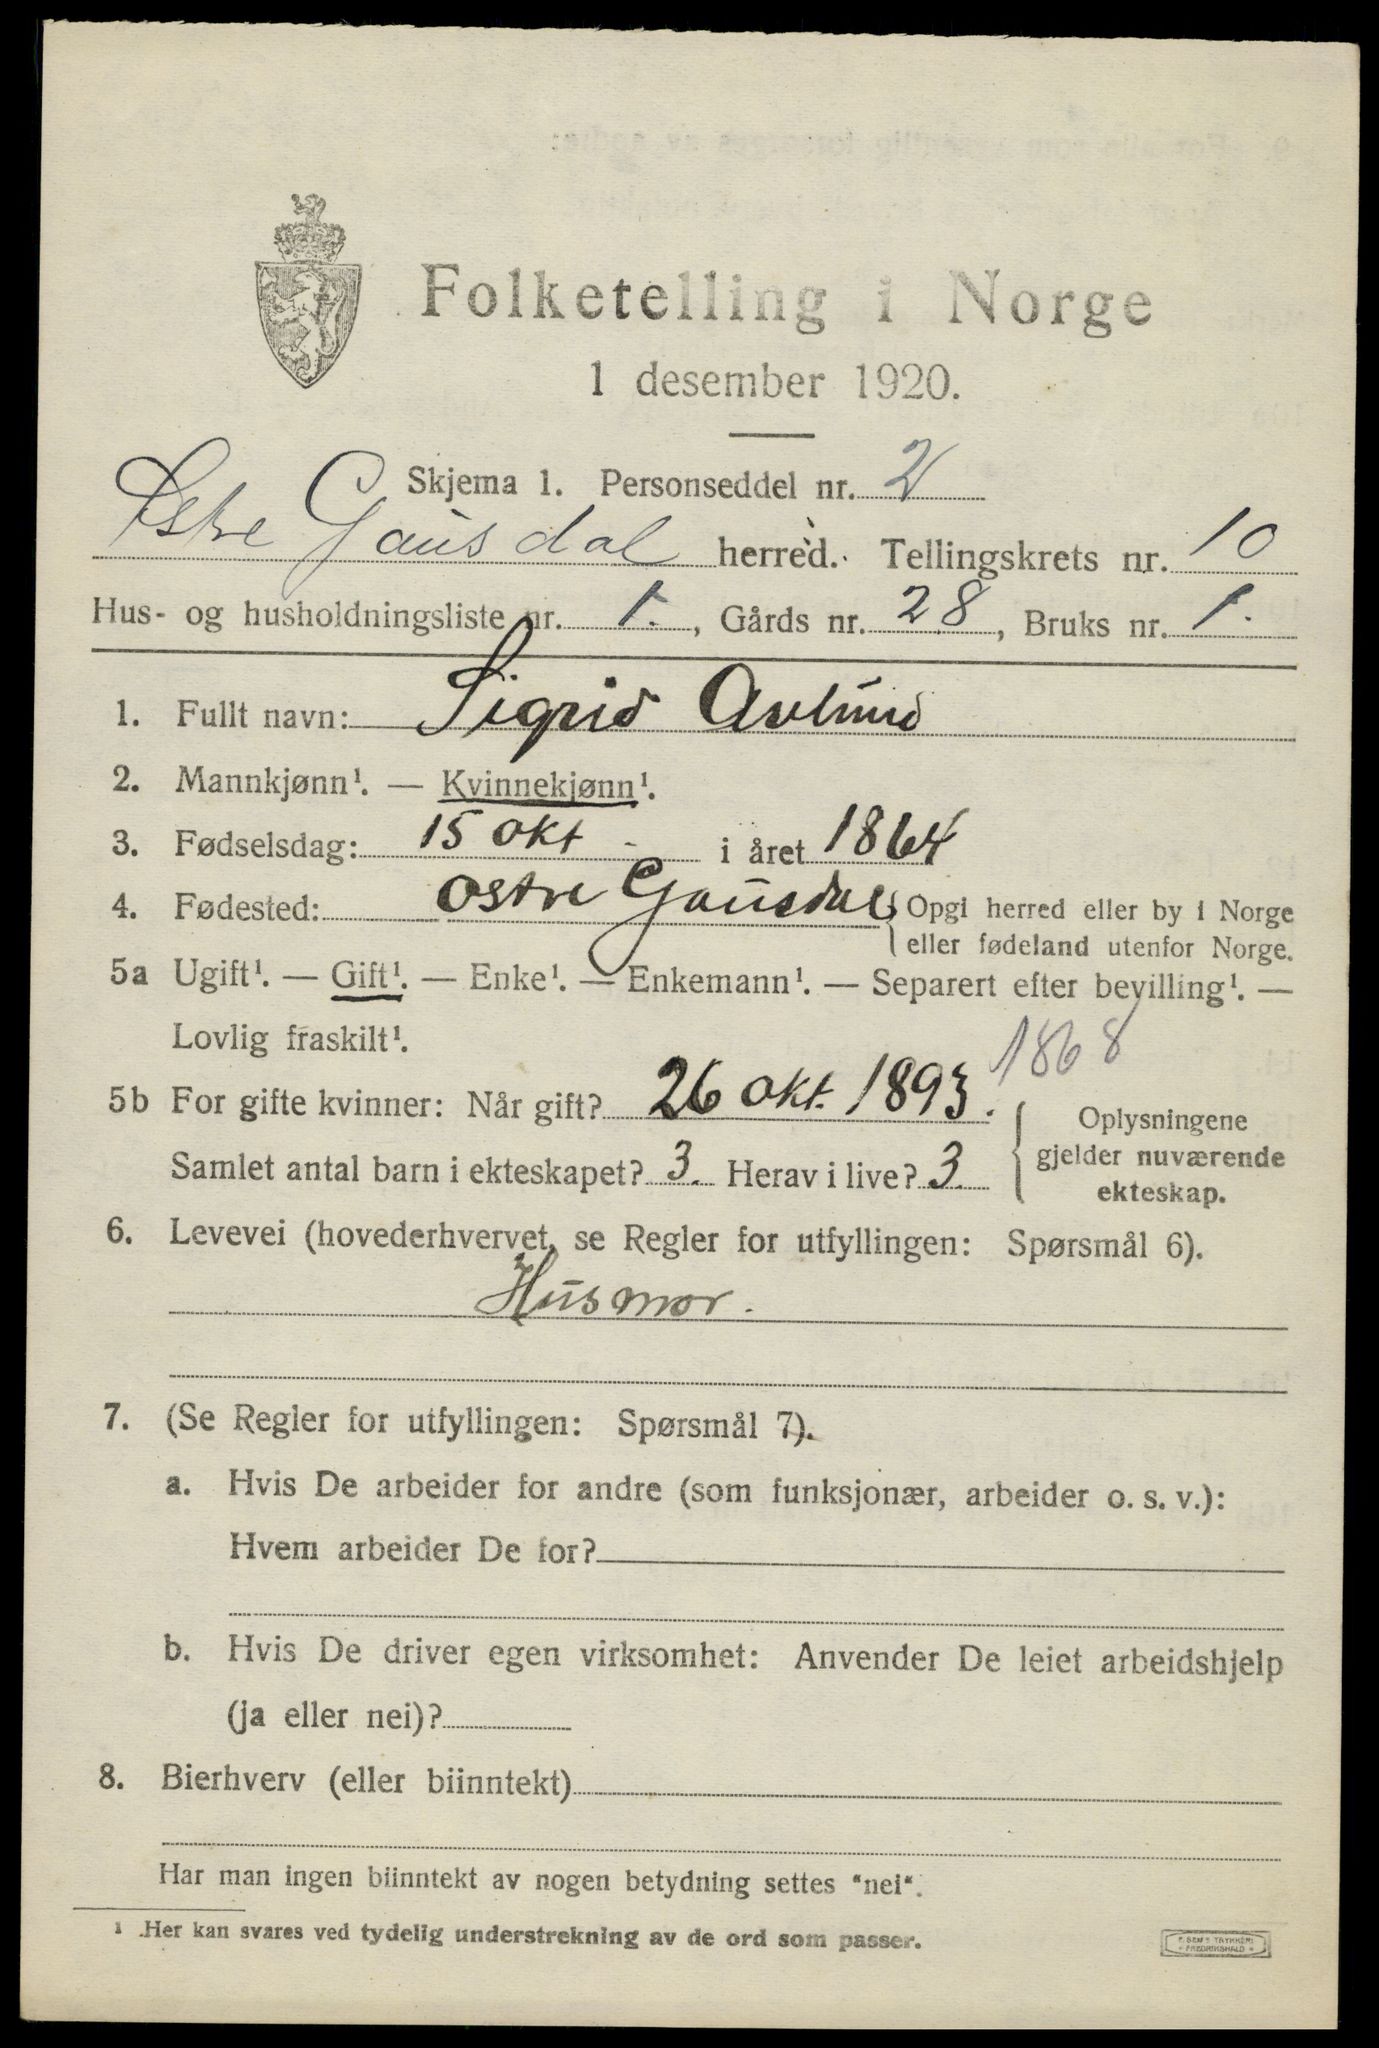 Folketelling i Norge
1 desember 1920.
Skjema 1. Personseddel nr. 2
Østre Gausdal herred. Tellingskrets nr. 10
Hus- og husholdningsliste nr. 1., Gårds nr. 28, Bruks nr. 1.
1. Fullt navn: Sigrid Avlund
2. Mannkjønn¹. — Kvinnekjønn¹.
3. Fødselsdag: 15 okt i året 1864
4. Fødested: Østre Gausdal { Opgi herred eller by i Norge
eller fødeland utenfor Norge.
5a Ugift¹. — Gift¹. — Enke¹. — Enkemann¹. — Separert efter bevilling¹. —
Lovlig fraskilt¹.
1868
5b For gifte kvinner: Når gift? 26 okt. 1893.
Samlet antal barn i ekteskapet? 3. Herav i live? 3.
{ Oplysningene
gjelder nuværende
ekteskap.
6. Levevei (hovederhvervet, se Regler for utfyllingen: Spørsmål 6).
Husmor.
7. (Se Regler for utfyllingen: Spørsmål 7).
a. Hvis De arbeider for andre (som funksjonær, arbeider o. s. v.):
Hvem arbeider De for?
b. Hvis De driver egen virksomhet: Anvender De leiet arbeidshjelp
(ja eller nei)?
8. Bierhverv (eller biinntekt)
Har man ingen biinntekt av nogen betydning settes "nei".
¹ Her kan svares ved tydelig understrekning av de ord som passer.
TRYKKERI
FREDRIKSHALD